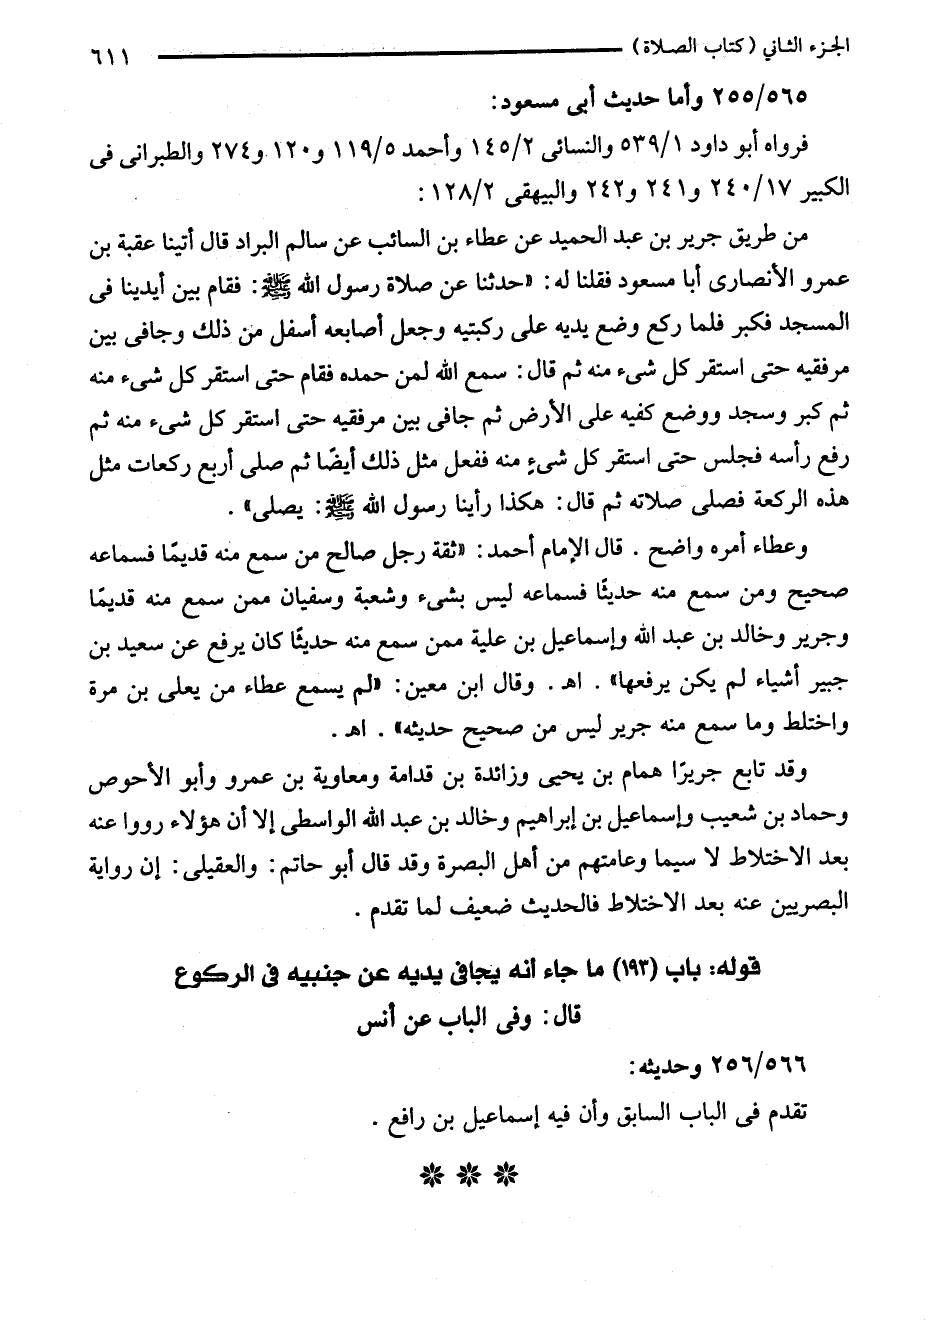 الجزء الثاني (كتاب الصلاة) ٦١١
٢٥٥/٥٦٥ وأما حديث أبى مسعود:
فرواه أبو داود ٥٣٩/١ والنسائى ١٤٥/٢ وأحمد ١١٩/٥ و١٢٠ و٢٧٤ والطبرانى فى
الكبير ٢٤٠/١٧ و٢٤١ و٢٤٢ والبيهقى ١٢٨/٢:
من طريق جرير بن عبد الحميد عن عطاء بن السائب عن سالم البراد قال أتينا عقبة بن
عمرو الأنصارى أبا مسعود فقلنا له: «حدثنا عن صلاة رسول الله ﷺ: فقام بين أيدينا فى
المسجد فكبر فلما ركع وضع يديه على ركبتيه وجعل أصابعه أسفل من ذلك وجافى بين
مرفقيه حتى استقر كل شىء منه ثم قال: سمع الله لمن حمده فقام حتى استقر كل شىء منه
ثم كبر وسجد ووضع كفيه على الأرض ثم جافى بين مرفقيه حتى استقر كل شىء منه ثم
رفع رأسه فجلس حتى استقر كل شىءٍ منه ففعل مثل ذلك أيضًا ثم صلى أربع ركعات مثل
هذه الركعة فصلى صلاته ثم قال: هكذا رأينا رسول الله ﷺ: يصلى».
وعطاء أمره واضح. قال الإمام أحمد: «ثقة رجل صالح من سمع منه قديمًا فسماعه
صحيح ومن سمع منه حديثًا فسماعه ليس بشىء وشعبة وسفيان ممن سمع منه قديمًا
وجرير وخالد بن عبد الله وإسماعيل بن علية ممن سمع منه حديثًا كان يرفع عن سعيد بن
جبير أشياء لم يكن يرفعها». اهـ. وقال ابن معين: «لم يسمع عطاء من يعلى بن مرة
واختلط وما سمع منه جرير ليس من صحيح حديثه». اهـ.
وقد تابع جريرًا همام بن يحيى وزائدة بن قدامة ومعاوية بن عمرو وأبو الأحوص
وحماد بن شعيب وإسماعيل بن إبراهيم وخالد بن عبد الله الواسطى إلا أن هؤلاء رووا عنه
بعد الاختلاط لا سيما وعامتهم من أهل البصرة وقد قال أبو حاتم: والعقيلى: إن رواية
البصريين عنه بعد الاختلاط فالحديث ضعيف لما تقدم.
قوله: باب (١٩٣) ما جاء أنه يجافى يديه عن جنبيه فى الركوع
قال: وفى الباب عن أنس
٢٥٦/٥٦٦ وحديثه:
تقدم فى الباب السابق وأن فيه إسماعيل بن رافع.